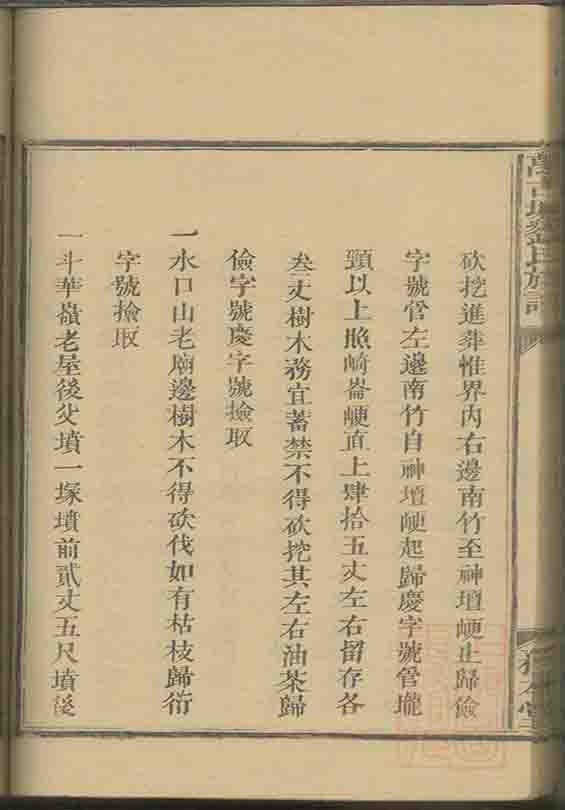 砍挖進葬惟界內右邊南竹至神壇崾止歸儉
字號管左邊南竹自神壇崾起歸慶字號管壠
頸以上照崎崙崾直上肆拾五丈左右留存各
叁丈樹木務宜蓄禁不得砍挖其左右油茶歸
儉字號慶字號撿取
一水口山老廟邊樹木不得砍伐如有枯枝歸衍
字號撿取
一斗華嶺老屋後父墳一塚墳前貳丈五尺墳後